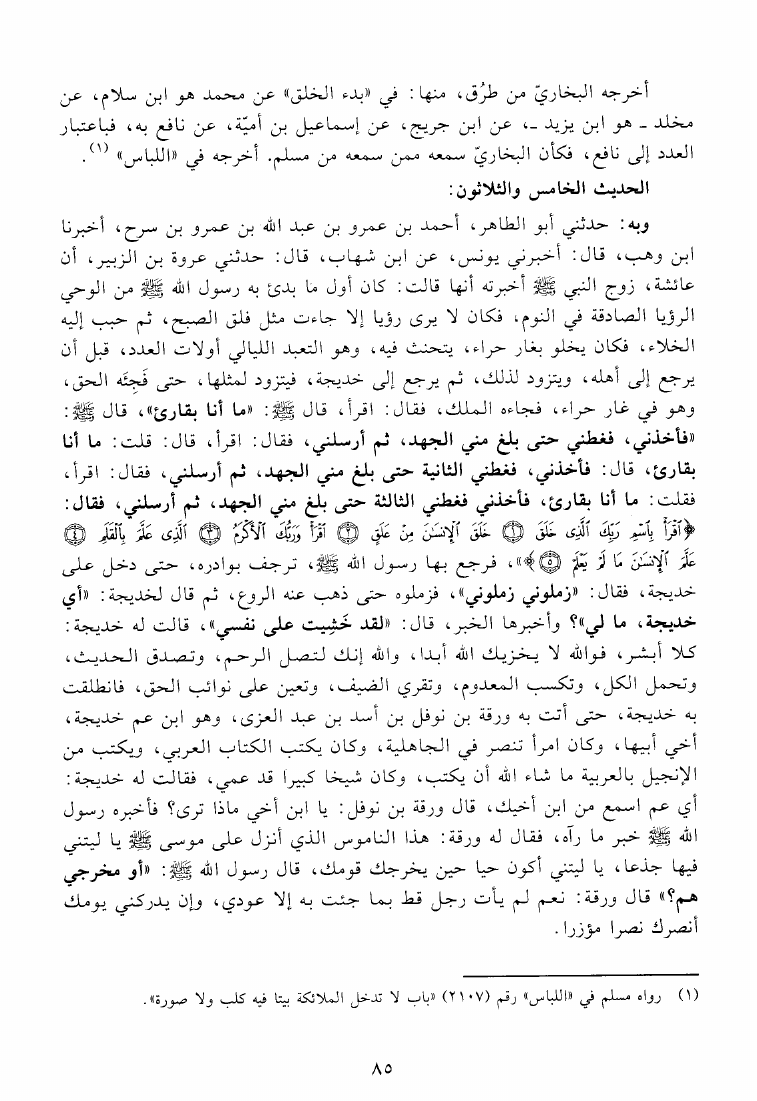 أخرجه البخاريّ من طرُق، منها: في «بدء الخلق» عن محمد هو ابن سلام، عن
مخلد ـ هو ابن يزيد ـ، عن ابن جريج، عن إسماعيل بن أميّة، عن نافع به، فباعتبار
العدد إلى نافع، فكأن البخاريّ سمعه ممن سمعه من مسلم. أخرجه في «اللباس» (١).
الحديث الخامس والثلاثون:
وبه: حدثني أبو الطاهر، أحمد بن عمرو بن عبد الله بن عمرو بن سرح، أخبرنا
ابن وهب، قال: أخبرني يونس، عن ابن شهاب، قال: حدثني عروة بن الزبير، أن
عائشة، زوج النبي ﷺ أخبرته أنها قالت: كان أول ما بدئ به رسول الله ﷺ من الوحي
الرؤيا الصادقة في النوم، فكان لا يرى رؤيا إلا جاءت مثل فلق الصبح، ثم حبب إليه
الخلاء، فكان يخلو بغار حراء، يتحنث فيه، وهو التعبد الليالي أولات العدد، قبل أن
يرجع إلى أهله، ويتزود لذلك، ثم يرجع إلى خديجة، فيتزود لمثلها، حتى فَجِئَه الحق،
وهو في غار حراء، فجاءه الملك، فقال: اقرأ، قال ﷺ: «ما أنا بقارئ»، قال ﷺ:
«فأخذني، فغطني حتى بلغ مني الجهد، ثم أرسلني، فقال: اقرأ، قال: قلت: ما أنا
بقارئ، قال: فأخذني، فغطني الثانية حتى بلغ مني الجهد، ثم أرسلني، فقال: اقرأ،
فقلت: ما أنا بقارئ، فأخذني فغطني الثالثة حتى بلغ مني الجهد، ثم أرسلني، فقال:
﴿ٱقْرَأْ بِٱسْمِ رَبِّكَ ٱلَّذِى خَلَقَ ۝١ خَلَقَ ٱلْإِنسَٰنَ مِنْ عَلَقٍ ۝٢ ٱقْرَأْ وَرَبُّكَ ٱلْأَكْرَمُ ۝٣ ٱلَّذِى عَلَّمَ بِٱلْقَلَمِ ۝٤
عَلَّمَ ٱلْإِنسَٰنَ مَا لَمْ يَعْلَمْ ۝٥﴾»، فرجع بها رسول الله ﷺ، ترجف بوادره، حتى دخل على
خديجة، فقال: «زملوني زملوني»، فزملوه حتى ذهب عنه الروع، ثم قال لخديجة: «أي
خديجة، ما لي»؟ وأخبرها الخبر، قال: «لقد خَشِيت على نفسي»، قالت له خديجة:
كلا أبشر، فوالله لا يخزيك الله أبدا، والله إنك لتصل الرحم، وتصدق الحديث،
وتحمل الكل، وتكسب المعدوم، وتقري الضيف، وتعين على نوائب الحق، فانطلقت
به خديجة، حتى أتت به ورقة بن نوفل بن أسد بن عبد العزى، وهو ابن عم خديجة،
أخي أبيها، وكان امرأ تنصر في الجاهلية، وكان يكتب الكتاب العربي، ويكتب من
الإنجيل بالعربية ما شاء الله أن يكتب، وكان شيخا كبيرا قد عمي، فقالت له خديجة:
أي عم اسمع من ابن أخيك، قال ورقة بن نوفل: يا ابن أخي ماذا ترى؟ فأخبره رسول
الله ﷺ خبر ما رآه، فقال له ورقة: هذا الناموس الذي أنزل على موسى ﷺ يا ليتني
فيها جذعا، يا ليتني أكون حيا حين يخرجك قومك، قال رسول الله ﷺ: «أو مخرجي
هم؟» قال ورقة: نعم لم يأت رجل قط بما جئت به إلا عودي، وإن يدركني يومك
أنصرك نصرا مؤزرا.
(١) رواه مسلم في «اللباس» رقم (٢١٠٧) «باب لا تدخل الملائكة بيتا فيه كلب ولا صورة».
٨٥